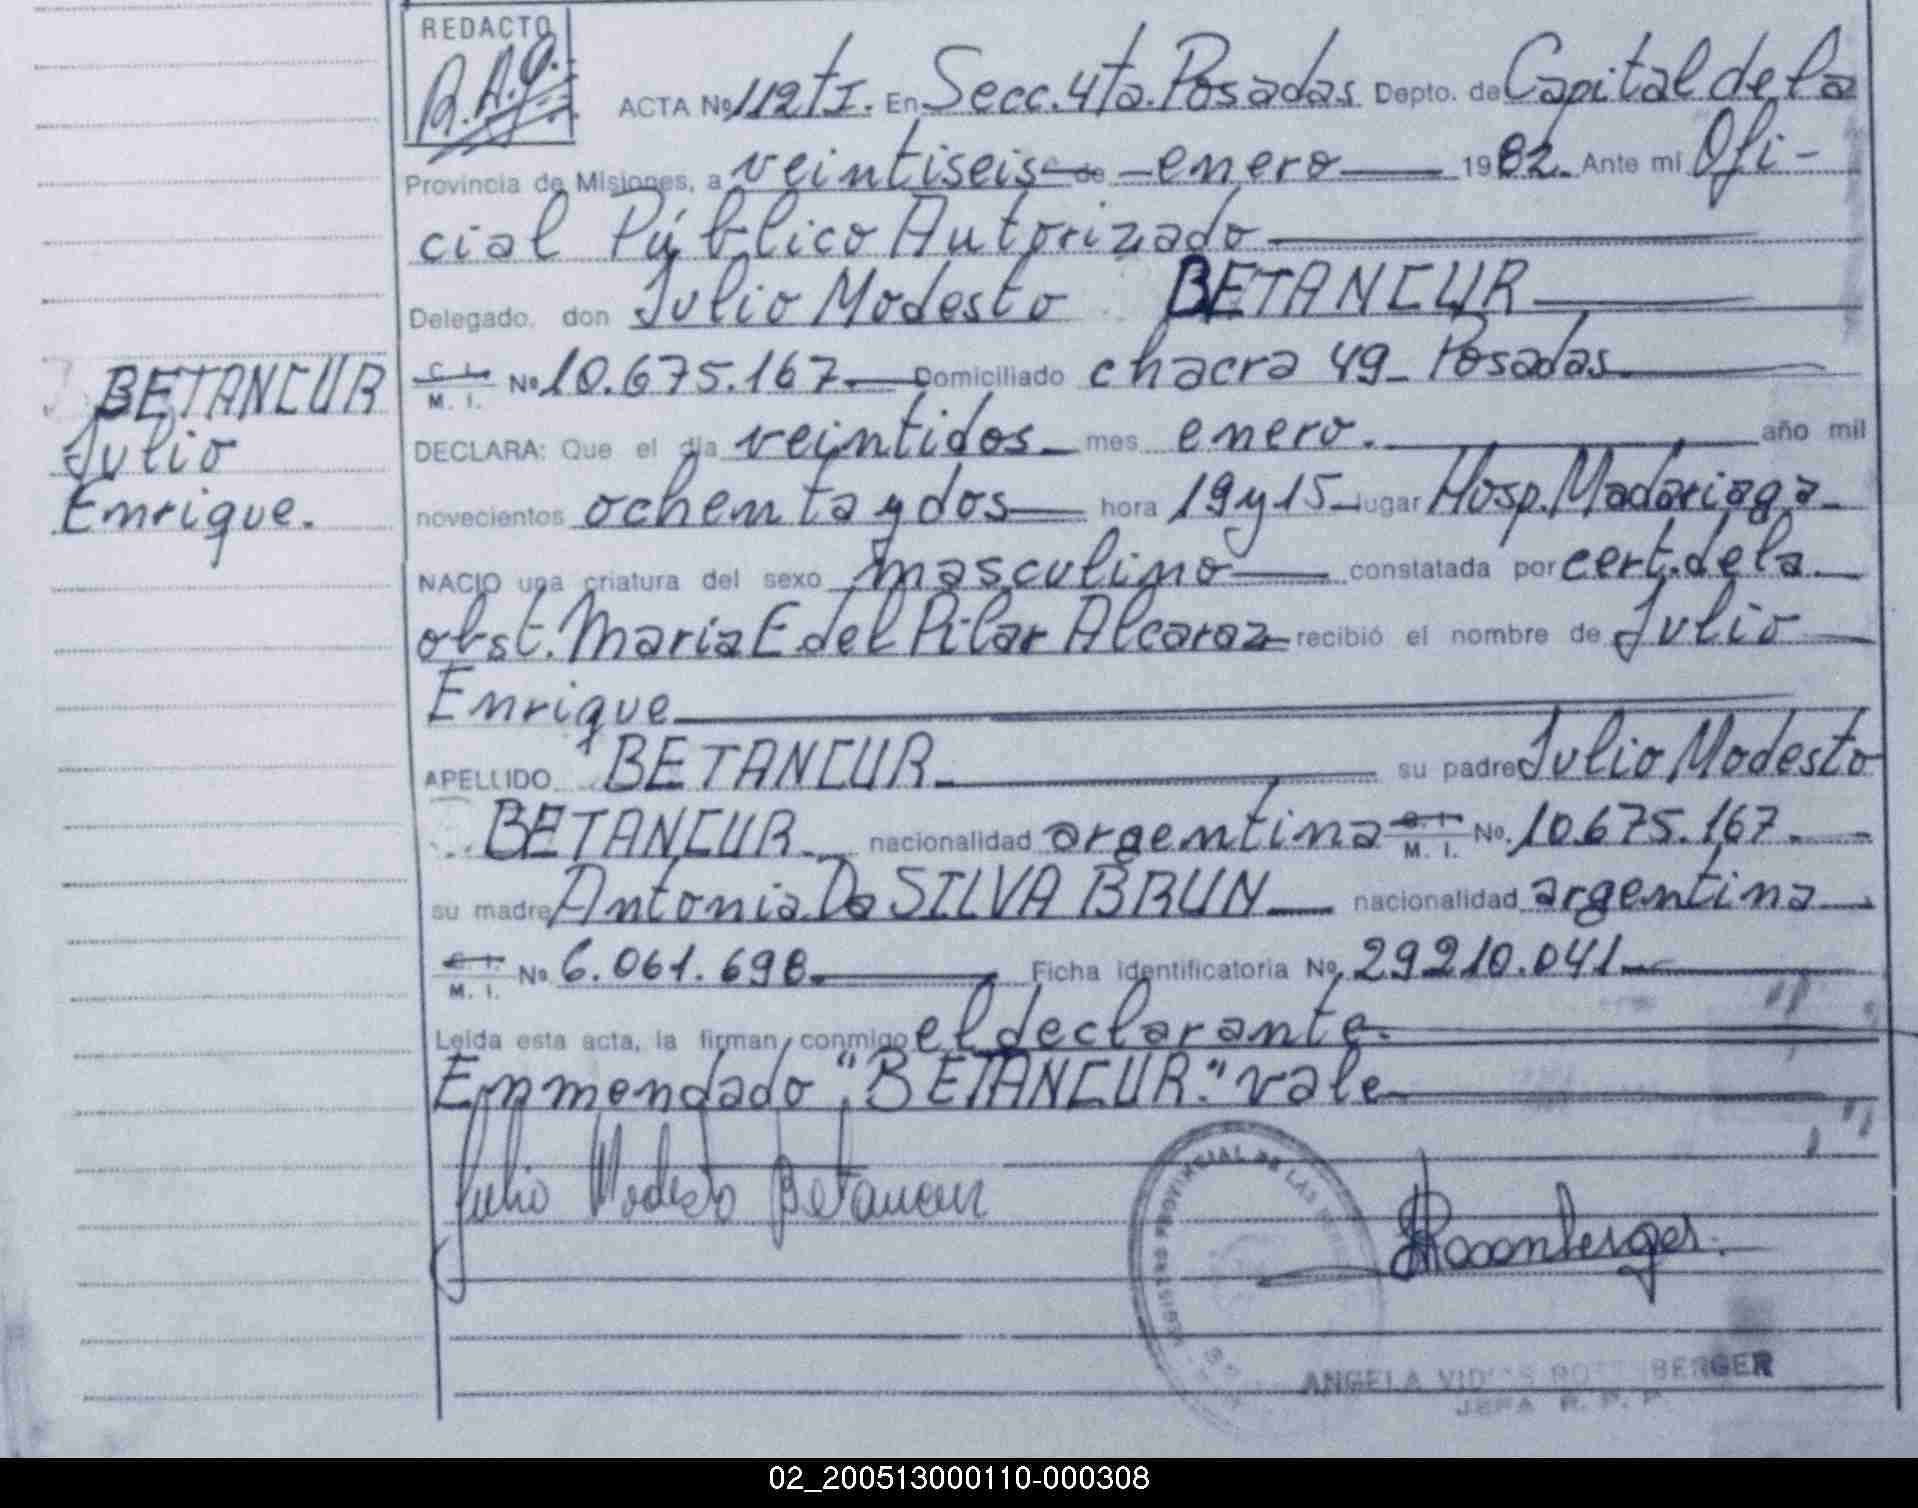 REDACTO
R.A.G.
ACTA Nº 112 tI. En Secc. 4ta. Posadas Depto. de Capital de la
Provincia de Misiones, a veintiseis de enero 1982. Ante mi Ofi-
cial Público Autorizado
Delegado, don Julio Modesto BETANCUR
C. I. M. I. Nº 10.675.167 Domiciliado chacra 49 - Posadas
DECLARA: Que el día veintidos mes enero. año mil
novecientos ochenta y dos hora 19 y 15 lugar Hosp. Madariaga
NACIO una criatura del sexo masculino constatada por cert. de la
obst. Maria E. del Pilar Alcaraz recibió el nombre de Julio
Enrique
APELLIDO BETANCUR su padre Julio Modesto
BETANCUR nacionalidad argentina C. I. M. I. Nº 10.675.167
su madre Antonia Da SILVA BRUN nacionalidad argentina
C. I. M. I. Nº 6.061.698 Ficha identificatoria Nº 29210.041
Leída esta acta, la firman conmigo el declarante.
Enmendado "BETANCUR." vale
BETANCUR
Julio
Enrique.
Julio Modesto Betancur
REGISTRO PROVINCIAL DE LAS
ANGELA BERGER
JEFA R. P. P.
02_200513000110-000308